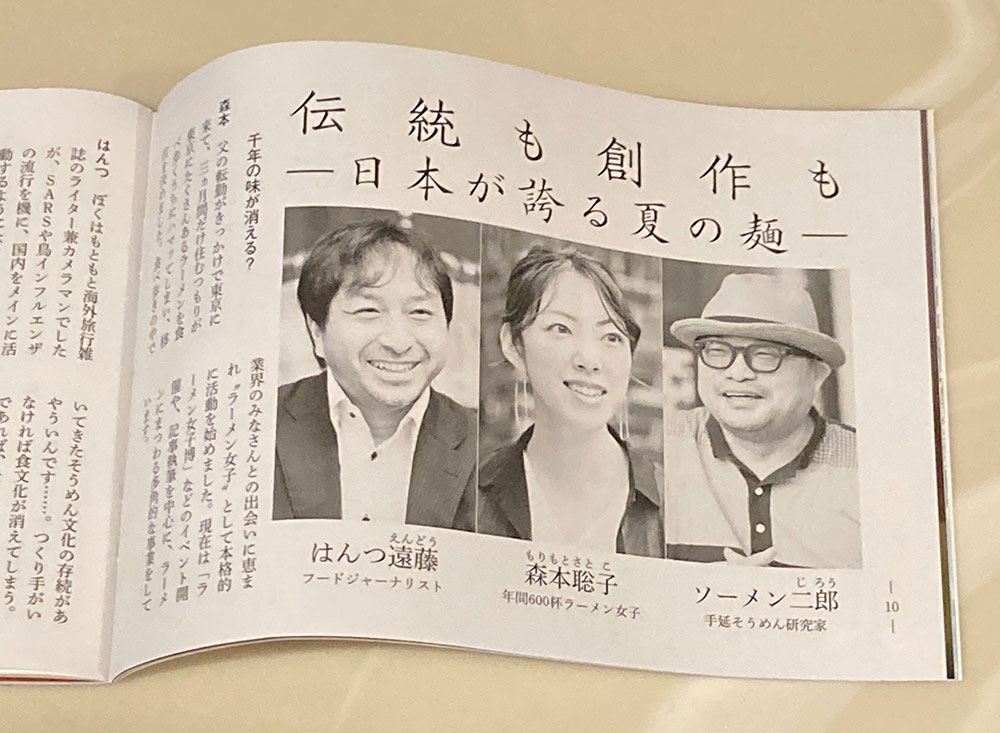 伝統も創作も
―日本が誇る夏の麺―
えんどう
はんつ遠藤
フードジャーナリスト
もりもとさとこ
森本聡子
年間600杯ラーメン女子
じろう
ソーメン二郎
手延そうめん研究家
― 10 ―
千年の味が消える?
森本 父の転勤がきっかけで東京に
来て、三ヵ月間だけ住むつもりが
東京にたくさんあるラーメンを食
べ歩くうちにハマッてしまい、移
住を決めました。食べ歩きの中で
業界のみなさんとの出会いに恵ま
れ〝ラーメン女子〟として本格的
に活動を始めました。現在は「ラ
ーメン女子博」などのイベント開
催や、記事執筆を中心に、ラーメ
ンにまつわる多角的な事業をして
います。
はんつ ぼくはもともと海外旅行雑
誌のライター兼カメラマンでした
が、SARSや鳥インフルエンザ
の流行を機に、国内をメインに活
動するように
いてきたそうめん文化の存続があ
やういんです……。つくり手がい
なければ食文化が消えてしまう。
であれば、